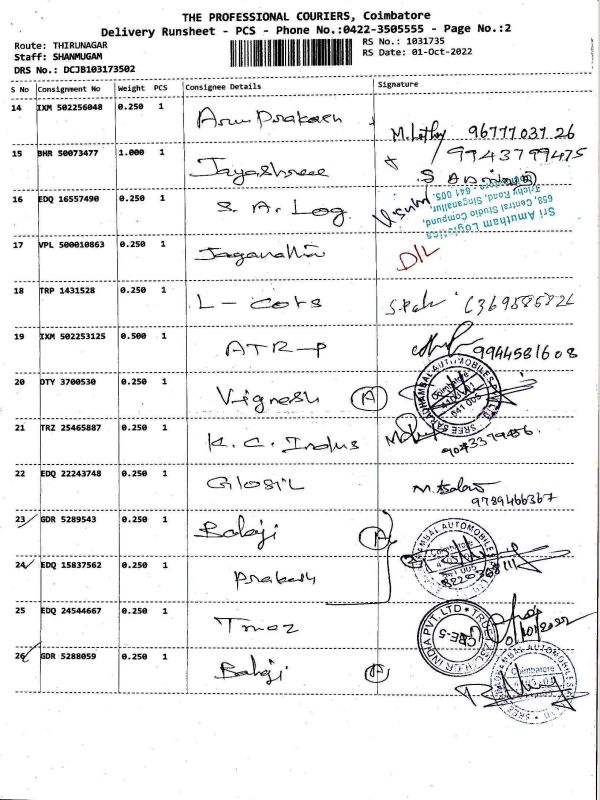 THE PROFESSIONAL COURIERS, Coimbatore
Delivery Runsheet - PCS - Phone No.:0422-3505555 - Page No.:2
Route: THIRUNAGAR
Staff: SHANMUGAM
DRS No.: DCJB103173502
RS No.: 1031735
RS Date: 01-Oct-2022
S No Consignment No Weight PCS Consignee Details Signature
14 IXM 502256048 0.250 1 Arun Prakash
96777037 26
15 BHR 50073477 1.000 1 Jayashree 9943799475
16 EDQ 16557490 0.250 1 S. A. Log
Sri Amutham Logistics
658, Central Studio Compound,
Trichy Road, Singanallur,
641 005.
17 VPL 500010863 0.250 1 D/L
18 TRP 1431528 0.250 1 L - Cots
19 IXM 502253125 0.500 1 ATR-P 9944581608
20 DTY 3700530 0.250 1 Vignesh A
SREE SARADHAMBAL AUTOMOBILES PVT LTD
Coimbatore
641 005
21 TRZ 25465887 0.250 1 K. C. Indus
22 EDQ 22243748 0.250 1 Glosil
9789466367
23 GDR 5289543 0.250 1 Balaji A
AUTOMOBILE
Coimbatore
24 EDQ 15837562 0.250 1 Prakash
25 EDQ 24544667 0.250 1
INDIA PVT. LTD
CBE-5
26 GDR 5288059 0.250 1 Balaji A
AUTOMOBILES
Coimbatore